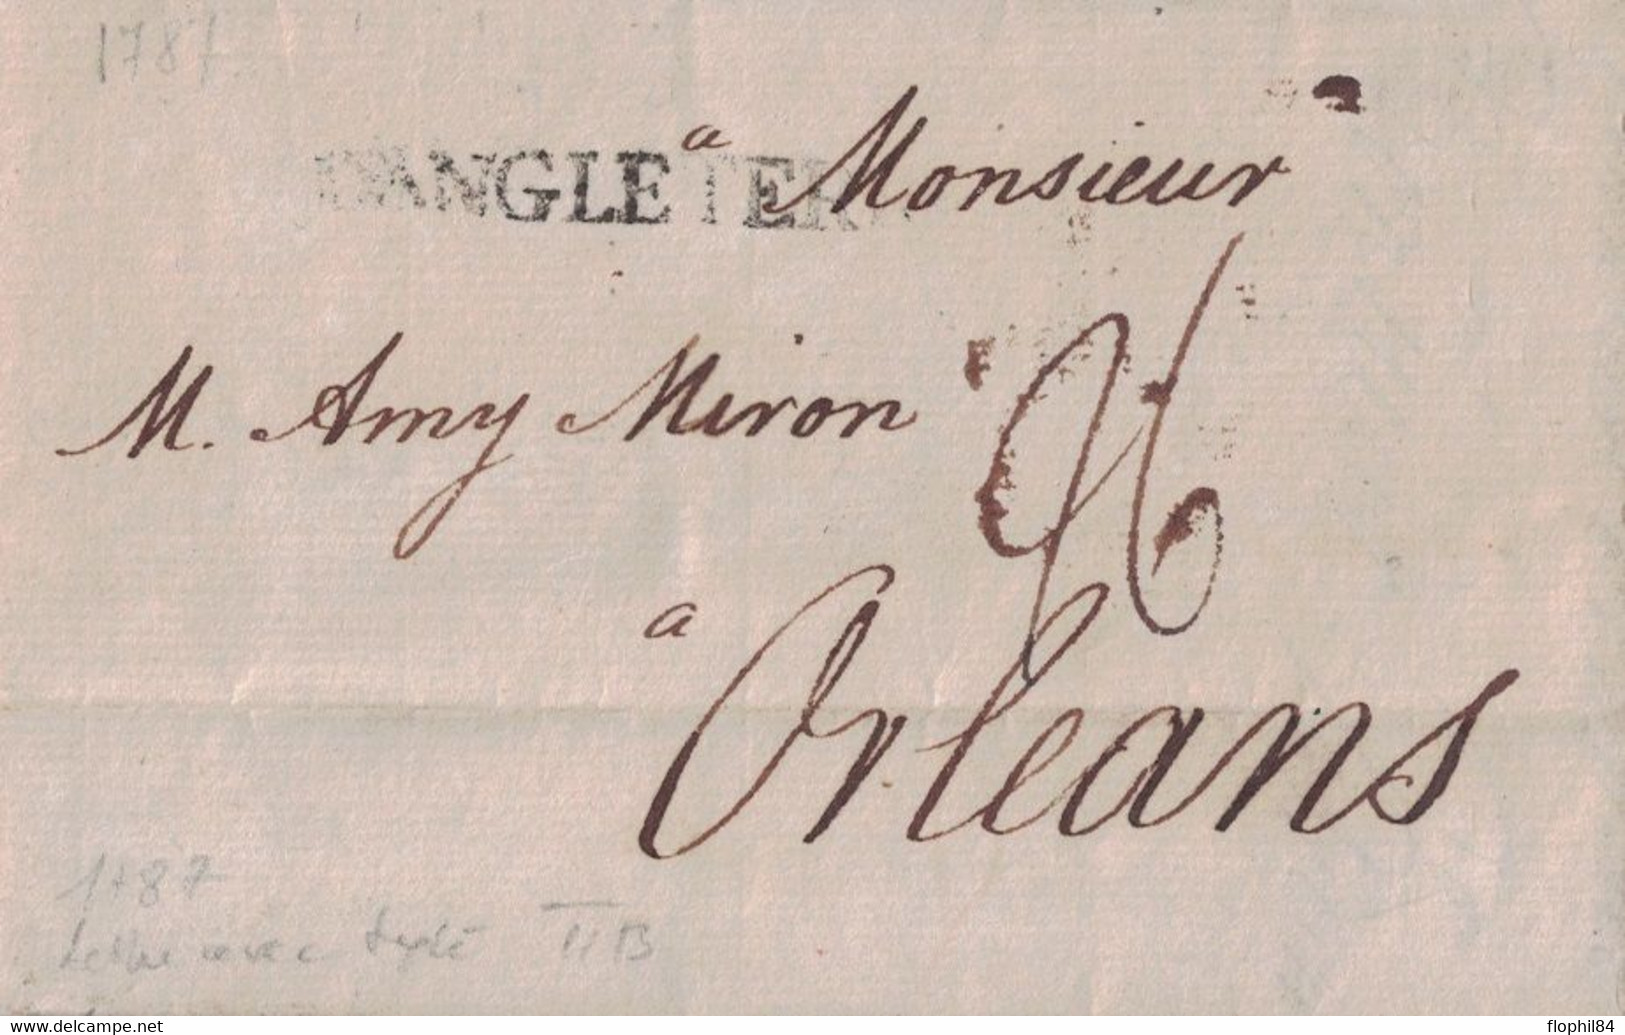 1787
D'ANGLETER
a Monsieur
M. Amy Miron
26
a Orleans
1787
Lettre avec texte II B
www.delcampe.net
flophil84